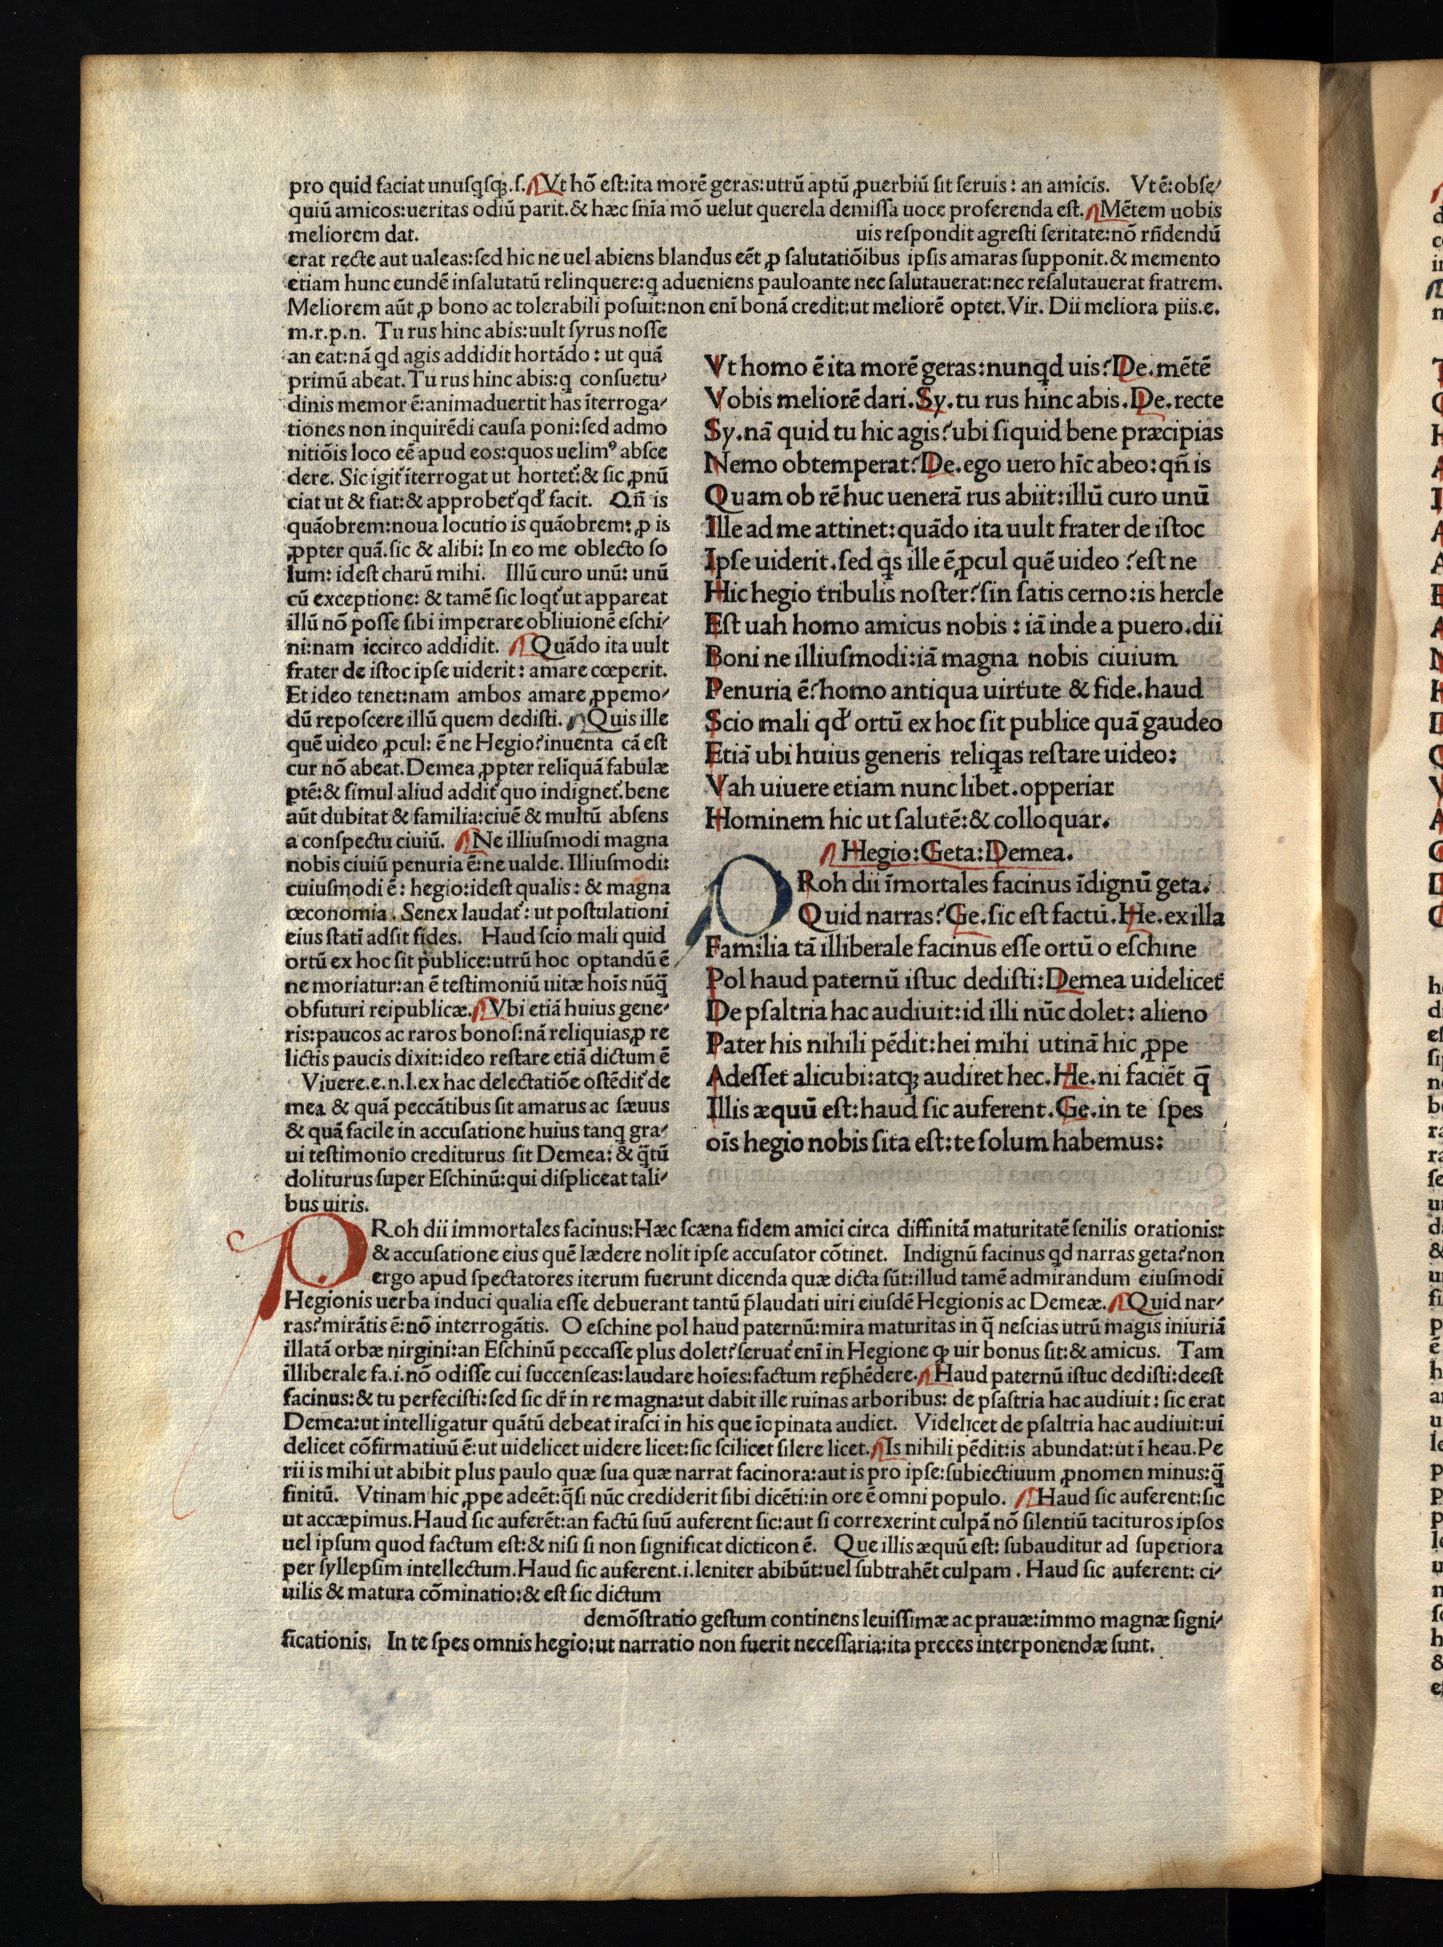 pro quid faciat unusq̃sq;.s. Vt hõ est:ita morẽ geras:utrũ aptũ ꝓuerbiũ sit seruis: an amicis. Vt ẽ:obse/
quiũ amicos:ueritas odiũ parit.& hæc snĩa mõ uelut querela demissa uoce proferenda est. Mẽtem uobis
meliorem dat. uis respondit agresti feritate:nõ rñdendũ
erat recte aut ualeas:sed hic ne uel abiens blandus eẽt ꝓ salutatiõibus ipsis amaras supponit.& memento
etiam hunc eundẽ insalutatũ relinquere:q adueniens pauloante nec salutauerat:nec resalutauerat fratrem.
Meliorem aũt ꝓ bono ac tolerabili posuit:non enĩ bonã credit:ut meliorẽ optet. Vir. Dii meliora piis.e.
m.r.p.n. Tu rus hinc abis:uult syrus nosse
an eat:nã qd agis addidit hortãdo: ut quã
primũ abeat. Tu rus hinc abis:q consuetu/
dinis memor ẽ:animaduertit has ĩterroga/
tiones non inquirẽdi causa poni:sed admo
nitiõis loco eẽ apud eos:quos uelimꝰ absce
dere. Sic igit̃ ĩterrogat ut hortet̃:& sic ꝓnũ
ciat ut & fiat:& approbet̃ qd̃ facit. Qñ is
quãobrem:noua locutio is quãobrem: ꝓ is
ꝓpter quã.sic & alibi: In eo me oblecto so
lum: idest charũ mihi. Illũ curo unũ: unũ
cũ exceptione: & tamẽ sic loqt̃ ut appareat
illũ nõ posse sibi imperare obliuionẽ eschi/
ni:nam iccirco addidit. Quãdo ita uult
frater de istoc ipse uiderit: amare cœperit.
Et ideo tenet:nam ambos amare ꝓpemo/
dũ reposcere illũ quem dedisti. Quis ille
quẽ uideo ꝓcul: ẽ ne Hegio? inuenta cã est
cur nõ abeat. Demea ꝓpter relĩquã fabulæ
ptẽ:& simul aliud addit̃ quo indignet̃.bene
aũt dubitat & familia:ciuẽ & multũ absens
a conspectu ciuiũ. Ne illiusmodi magna
nobis ciuiũ penuria ẽ:ne ualde. Illiusmodi:
cuiusmodi ẽ: hegio:idest qualis: & magna
œconomia. Senex laudat̃: ut postulationi
eius statĩ adsit fides. Haud scio mali quid
ortũ ex hoc sit publice:utrũ hoc optandũ ẽ
ne moriatur:an ẽ testimoniũ uitæ hoĩs nũq̃
obfuturi reipublicæ. Vbi etiã huius gene/
ris:paucos ac raros bonos:nã reliquias ꝓ re
lictis paucis dixit:ideo restare etiã dictum ẽ
Viuere.e.n.l.ex hac delectatiõe ostẽdit̃ de
mea & quã peccãtibus sit amarus ac sæuus
& quã facile in accusatione huius tanq gra/
ui testimonio crediturus sit Demea: & q̃tũ
doliturus super Eschinũ:qui displiceat tali/
bus uiris.
Vt homo ẽ ita morẽ geras:nunqd uis? De. mẽtẽ
Vobis meliorẽ dari. Sy. tu rus hinc abis. De. recte
Sy. nã quid tu hic agis? ubi siquid bene præcipias
Nemo obtemperat? De. ego uero hĩc abeo:qñ is
Quam ob rẽ huc uenerã rus abiit:illũ curo unũ
Ille ad me attinet:quãdo ita uult frater de istoc
Ipse uiderit.sed qs ille ẽ ꝓcul quẽ uideo? est ne
Hic hegio tribulis noster? sin satis cerno:is hercle
Est uah homo amicus nobis: iã inde a puero.dii
Boni ne illiusmodi:iã magna nobis ciuium
Penuria ẽ? homo antiqua uirtute & fide.haud
Scio mali qd̃ ortũ ex hoc sit publice quã gaudeo
Etiã ubi huius generis reliqas restare uideo:
Vah uiuere etiam nunc libet.opperiar
Hominem hic ut salutẽ:& colloquar.
Hegio: Geta: Demea.
PRoh dii ĩmortales facinus ĩdignũ geta.
Quid narras? Ge. sic est factũ. He. ex illa
Familia tã illiberale facinus esse ortũ o eschine
Pol haud paternũ istuc dedisti:Demea uidelicet
De psaltria hac audiuit:id illi nũc dolet: alieno
Pater his nihili pẽdit:hei mihi utinã hic ꝓpe
Adesset alicubi:atq; audiret hec. He. ni faciẽt q̃
Illis æquũ est:haud sic auferent. Ge. in te spes
oĩs hegio nobis sita est:te solum habemus:
PRoh dii immortales facinus: Hæc scæna fidem amici circa diffinitã maturitatẽ senilis orationis:
& accusatione eius quẽ lædere nolit ipse accusator cõtinet. Indignũ facinus qd narras geta? non
ergo apud spectatores iterum fuerunt dicenda quæ dicta sũt:illud tamẽ admirandum eiusmodi
Hegionis uerba induci qualia esse debuerant tantũ p̃laudati uiri eiusdẽ Hegionis ac Demeæ. Quid nar/
ras? mirãtis ẽ:nõ interrogãtis. O eschine pol haud paternũ:mira maturitas in q̃ nescias utrũ magis iniuriã
illatã orbæ nirgini:an Eschinũ peccasse plus dolet? seruat̃ enĩ in Hegione ꝙ uir bonus sit:& amicus. Tam
illiberale fa.i.nõ odisse cui succenseas:laudare hoĩes:factum rep̃hẽdere. Haud paternũ istuc dedisti:deest
facinus:& tu perfecisti:sed sic dr̃ in re magna:ut dabit ille ruinas arboribus: de psastria hac audiuit: sic erat
Demea:ut intelligatur quãtũ debeat irasci in his que ĩopinata audiet. Videlicet de psaltria hac audiuit:ui
delicet cõfirmatiuũ ẽ:ut uidelicet uidere licet:sic scilicet silere licet. Is nihili pẽdit:is abundat:ut ĩ heau. Pe
rii is mihi ut abibit plus paulo quæ sua quæ narrat facinora:aut is pro ipse:subiectiuum ꝓnomen minus:q̃
finitũ. Vtinam hic ꝓpe adeẽt:q̃si nũc crediderit sibi dicẽti:in ore ẽ omni populo. Haud sic auferent:sic
ut accæpimus. Haud sic auferẽt:an factũ suũ auferent sic:aut si correxerint culpã nõ silentiũ tacituros ipsos
uel ipsum quod factum est:& nisi si non significat dicticon ẽ. Que illis æquũ est: subauditur ad superiora
per syllepsim intellectum. Haud sic auferent.i.leniter abibũt:uel subtrahẽt culpam. Haud sic auferent: ci/
uilis & matura cõminatio:& est sic dictum
demõstratio gestum continens leuissimæ ac prauæ:immo magnæ signi/
ficationis. In te spes omnis hegio:ut narratio non fuerit necessaria:ita preces interponendæ sunt.